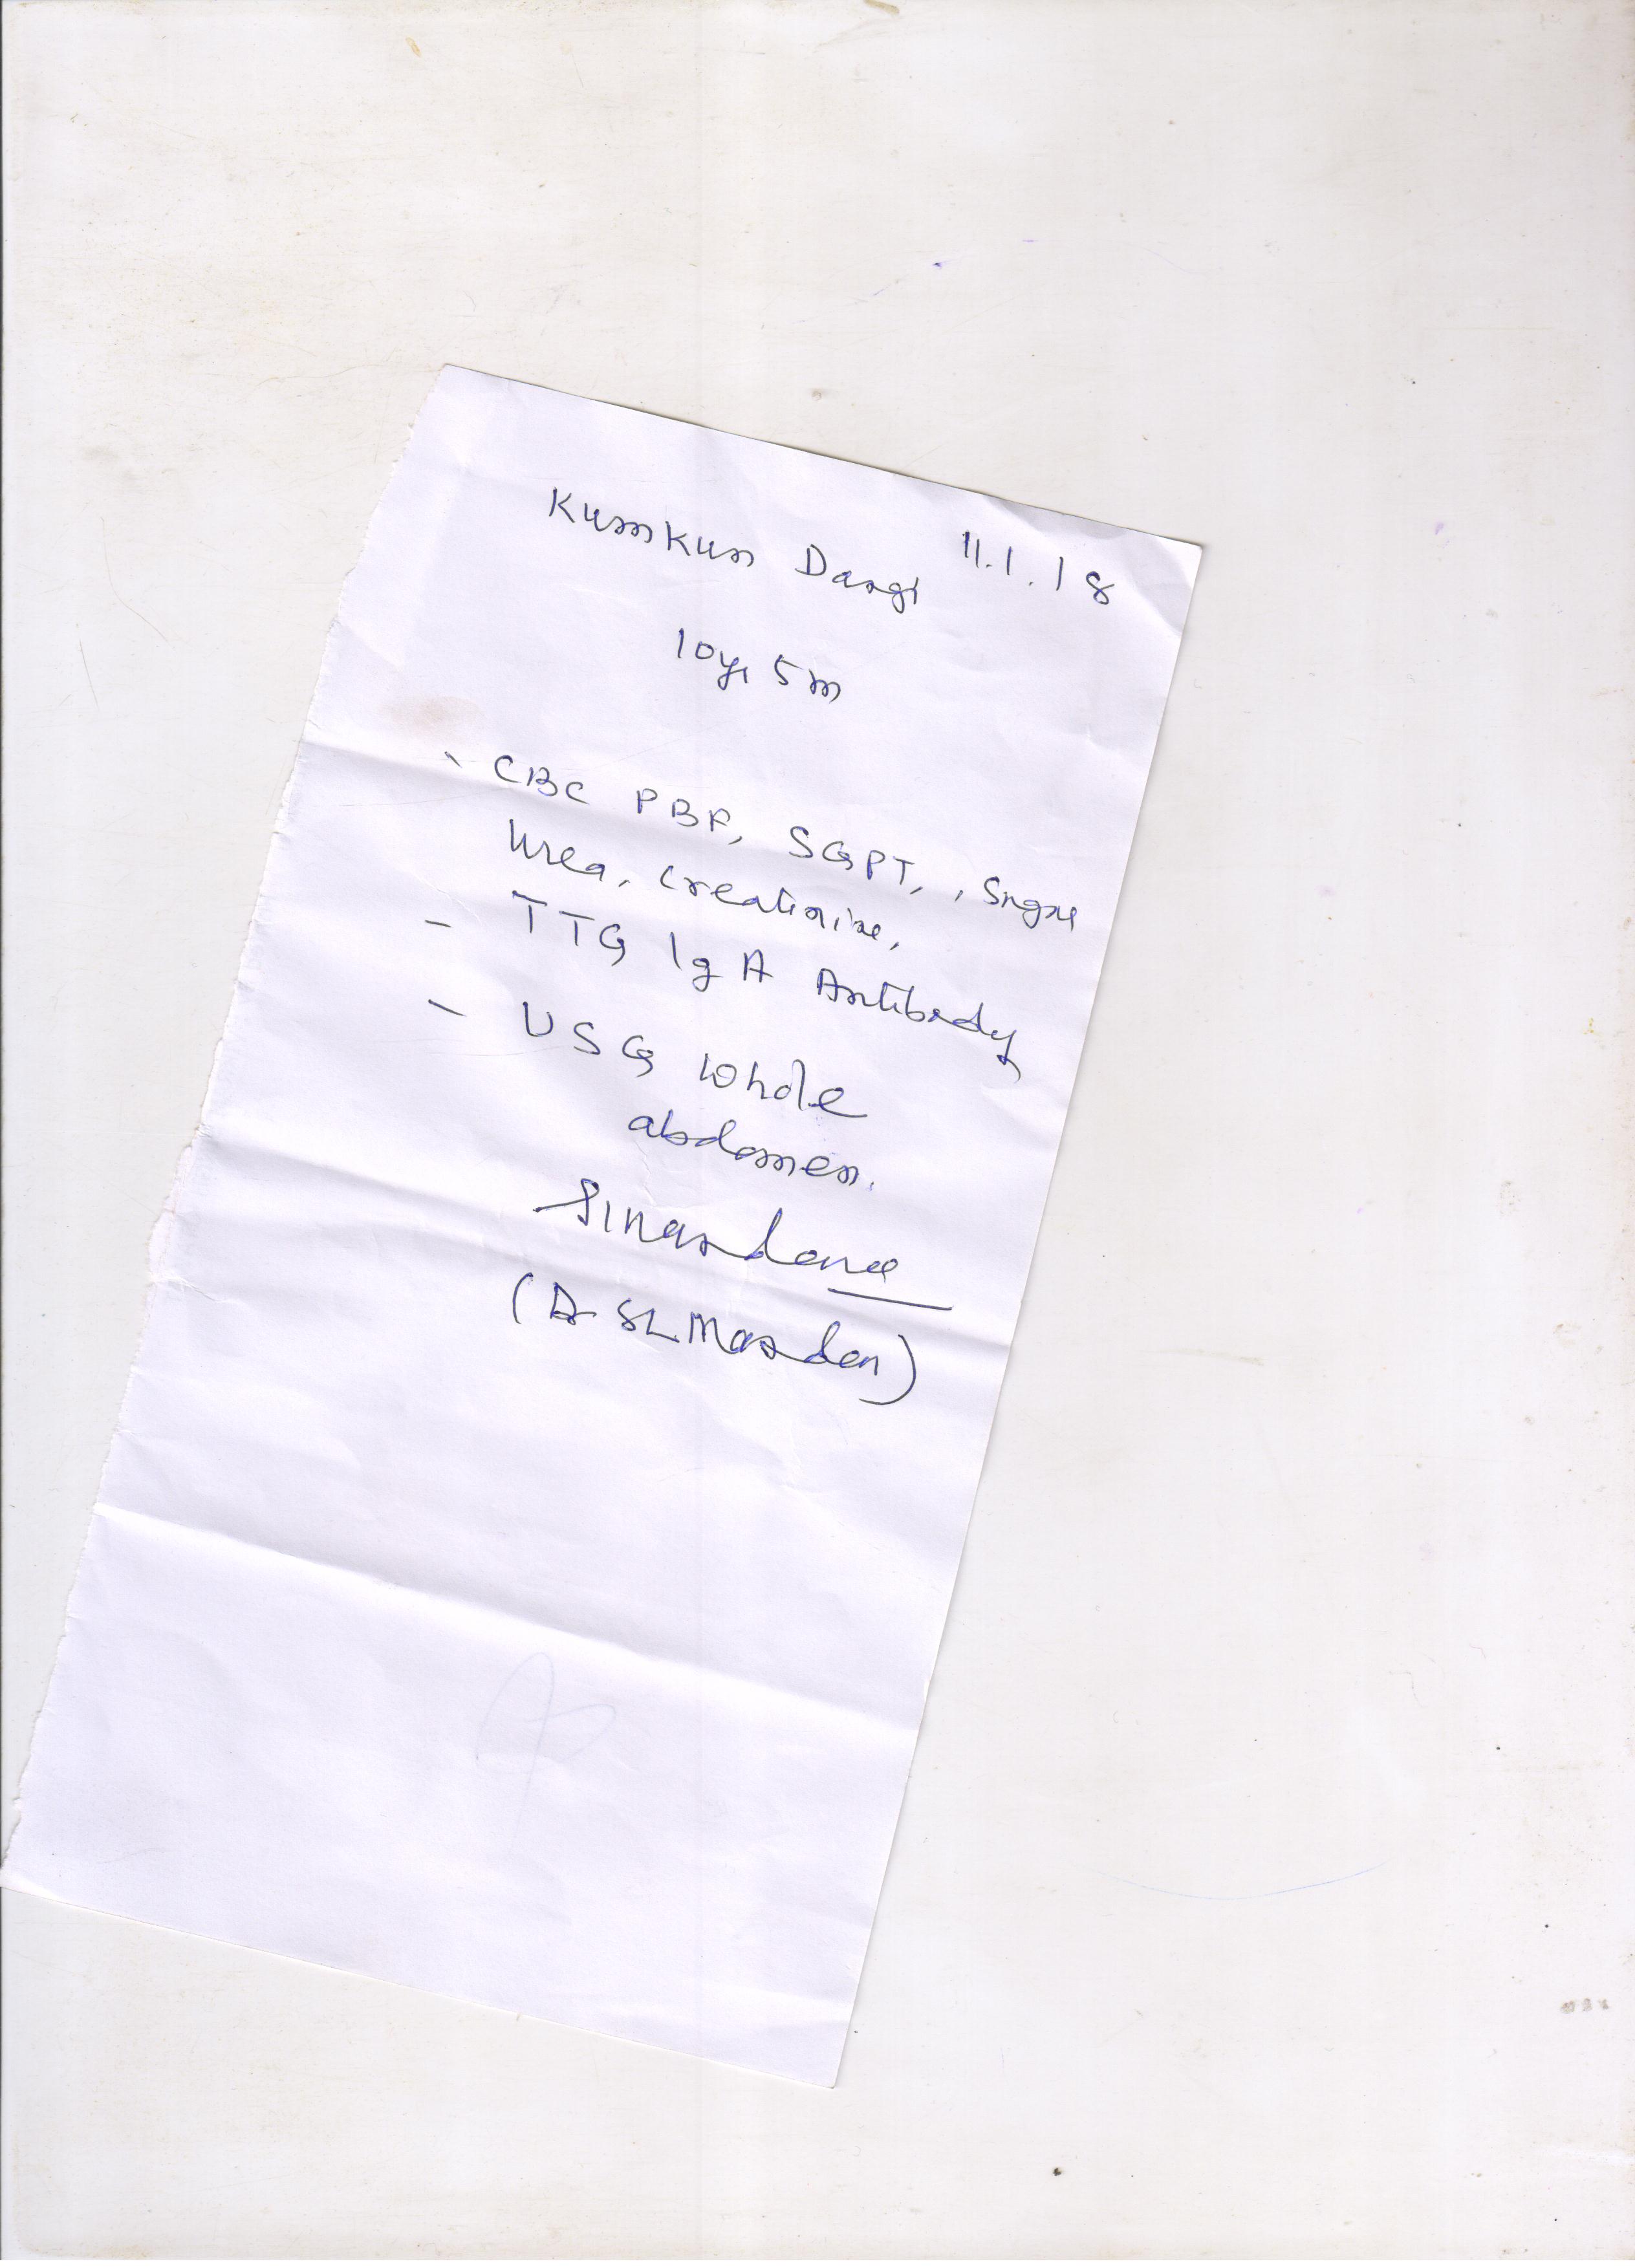 Kumkum Dangi 11.1.18
10yr 5m
- CBC PBF, SGPT, , Sugar
Urea, Creatinine,
- TTG IgA Antibody
- USG whole
abdomen.
(Dr SL Mandan)